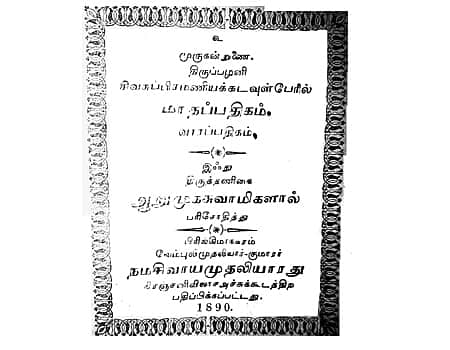 உ
முருகன் றுணை.
திருப்பழனி
சிவசுப்பிரமணியக்கடவுள்பேரில்
மாதப்பதிகம்,
வாரப்பதிகம்,
இஃது
திருத்தணிகை
ஆறுமுகசுவாமிகளால்
பரிசோதித்து
வேம்புலிமுதலியார்-குமாரர்
நமசிவாயமுதலியாரது
நிரஞ்சனிவிலாச அச்சுக்கூடத்திற்
பதிப்பிக்கப்பட்டது.
1890.